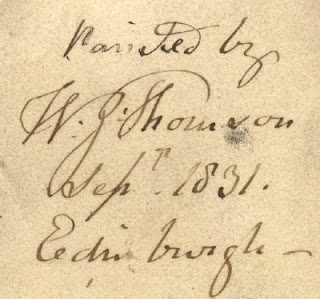 Painted by
W. J. Thomson
Sepr. 1831.
Edinburgh —